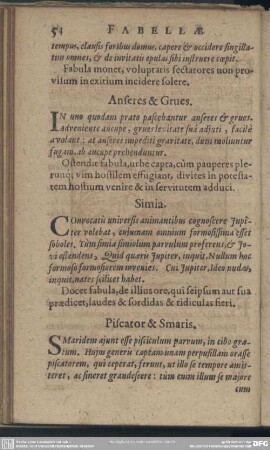 54 FABELLÆ
tempus, clausis foribus domus, capere & occidere singillatim
omnes, & de invitatis epulas sibi instruere cœpit.
Fabula monet, voluptatis sectatores non provisum
in exitium incidere solere.
Anseres & Grues.
IN uno quodam prato pascebantur anseres & grues.
adveniente aucupe, grues levitate suâ adjuti, facilè
avolant: at anseres impediti gravitate, dum moliuntur
fugam, ab aucupe prehenduntur.
Ostendit fabula, urbe capta, cùm pauperes plerunq;
vim hostilem effugiant, divites in potestatem
hostium venire & in servitutem adduci.
Simia.
Convocatis universis animantibus cognoscere Jupiter
volebat, cujusnam omnium formosissima esset
soboles. Tùm simia simiolum parvulum proferens, & Jovi
ostendens, Quid quæris Jupiter, inquit. Nullum hoc
formoso formosiorem invenies. Cui Jupiter, Ideo nudas,
inquit, nates scilicet habet.
Docet fabula, de illius ore, qui seipsum aut sua
prædicet, laudes & sordidas & ridiculas fieri.
Piscator & Smaris.
SMaridem ajunt esse pisciculum parvum, in cibo gratum.
Hujus generis captam unam perpusillam orasse
piscatorem, qui ceperat, ferunt, ut illo se tempore amitteret,
ac sineret grandescere: tùm enim illum se majore
cum